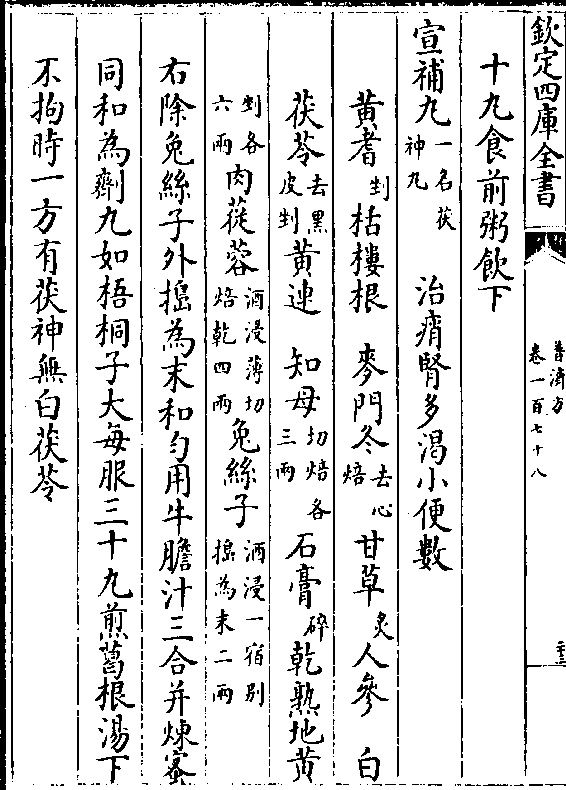 欽定四庫全書
普濟方
卷一百七十八
二十三
十丸食前粥飲下
宣補丸一名茯神丸 治痟腎多渴小便數
黄耆剉 栝樓根 麥門冬去心焙 甘草炙 人參 白
茯苓去黑皮剉 黄連 知母切焙各三兩 石膏碎 乾熟地黄
剉各六兩 肉蓯蓉酒浸薄切焙乾四兩 兔絲子酒浸一宿别搗為末二兩
右除兔絲子外搗為末和勻用牛膽汁三合并煉蜜
同和為劑丸如梧桐子大每服三十丸煎葛根湯下
不拘時一方有茯神無白茯苓